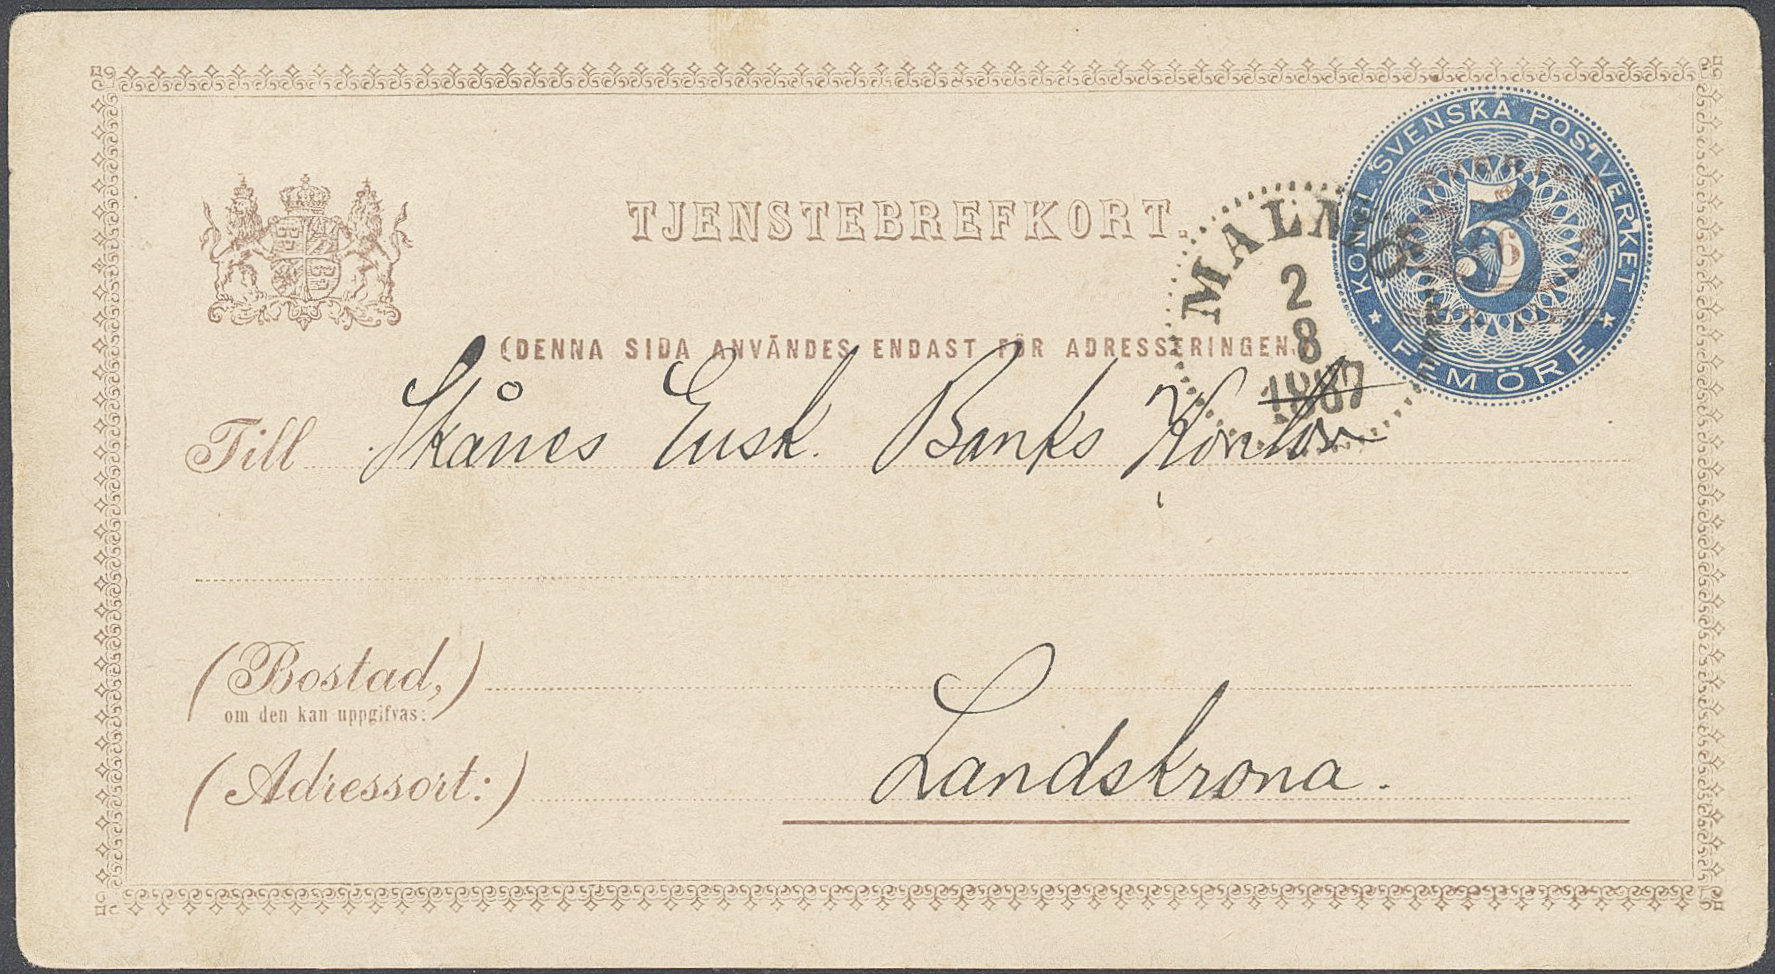 TJENSTEBREFKORT.
KONGL. SVENSKA POSTVERKET
5
FEM ÖRE
MALMÖ
2
8
1887
(DENNA SIDA ANVÄNDES ENDAST FÖR ADRESSERINGEN.)
Till Skånes Ensk. Banks Kontor
(Bostad,)
om den kan uppgifvas:
(Adressort:) Landskrona.